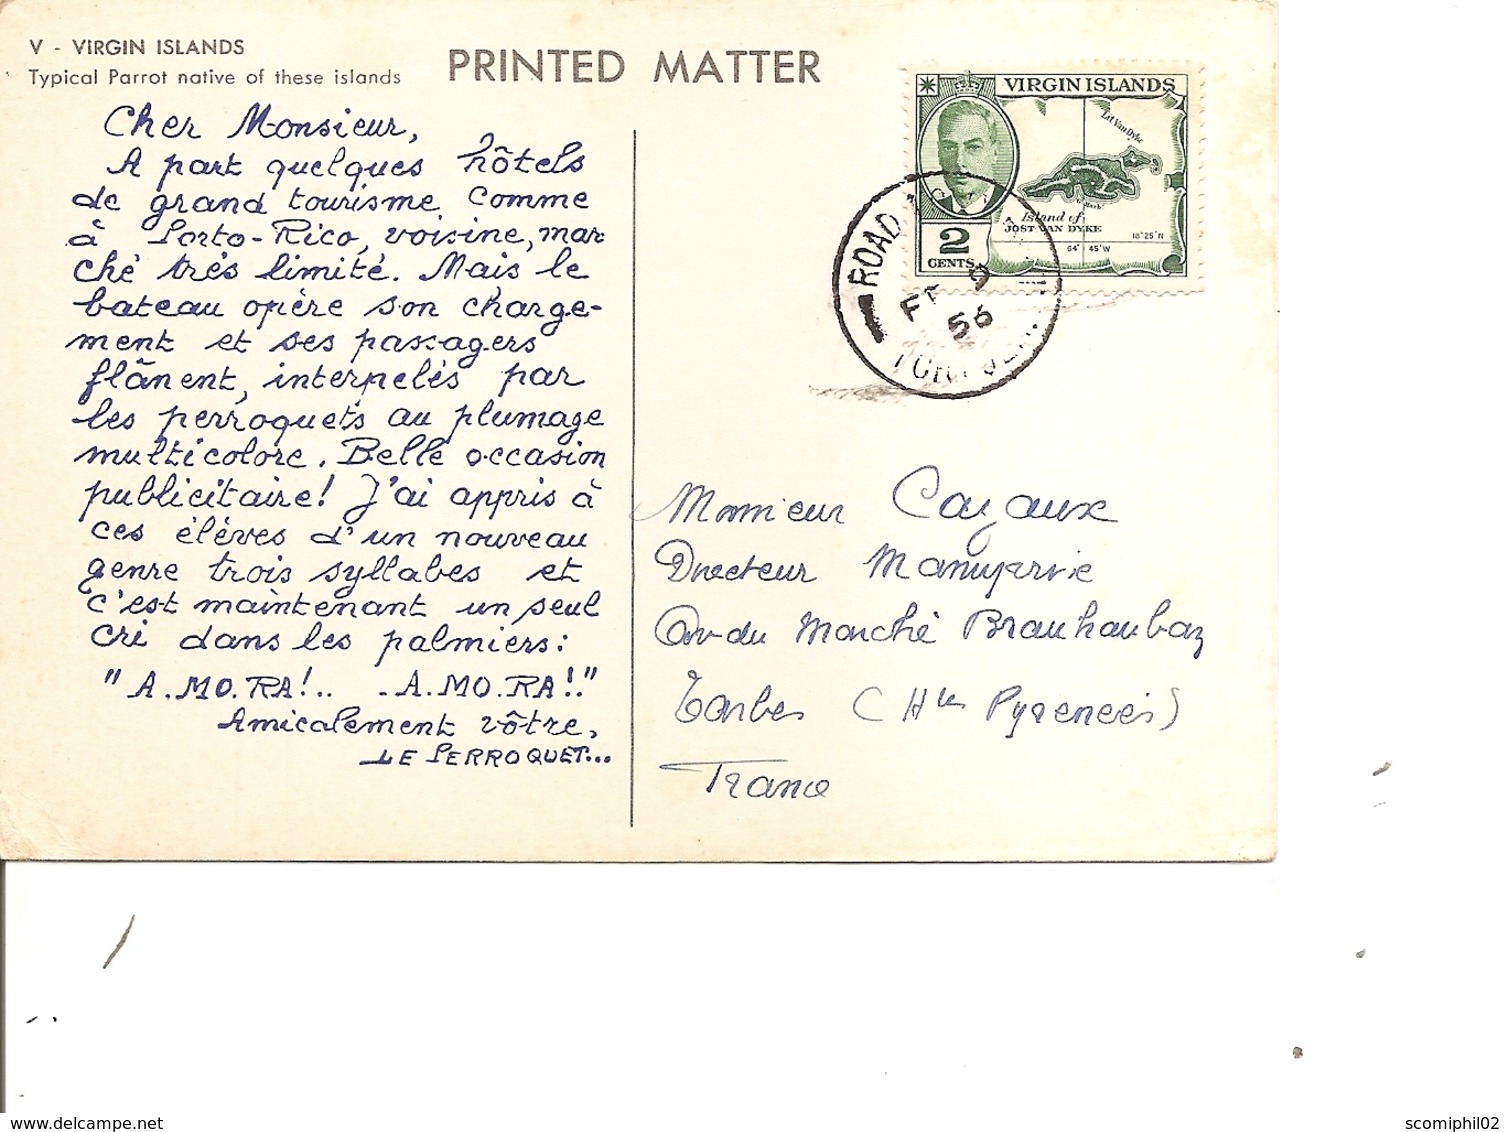 V - VIRGIN ISLANDS
Typical Parrot native of these islands
PRINTED MATTER
Cher Monsieur,
A part quelques hôtels
de grand tourisme comme
à Porto-Rico, voisine, mar
ché très limité. Mais le
bateau opère son charge-
ment et ses passagers
flânent, interpelés par
les perroquets au plumage
multicolore. Belle occasion
publicitaire! J'ai appris à
ces élèves d'un nouveau
genre trois syllabes et
c'est maintenant un seul
cri dans les palmiers:
"A.MO.RA!.. -A.MO.RA!."
Amicalement vôtre,
LE PERROQUET...
VIRGIN ISLANDS
Island of
JOST VAN DYKE
18°25'N
64° 45'W
2
CENTS
ROAD
9
56
Monsieur Cazaux
Directeur
du Marché Brauhauban
Tarbes (Htes Pyrenees)
France
www.delcampe.net
scomiphil02